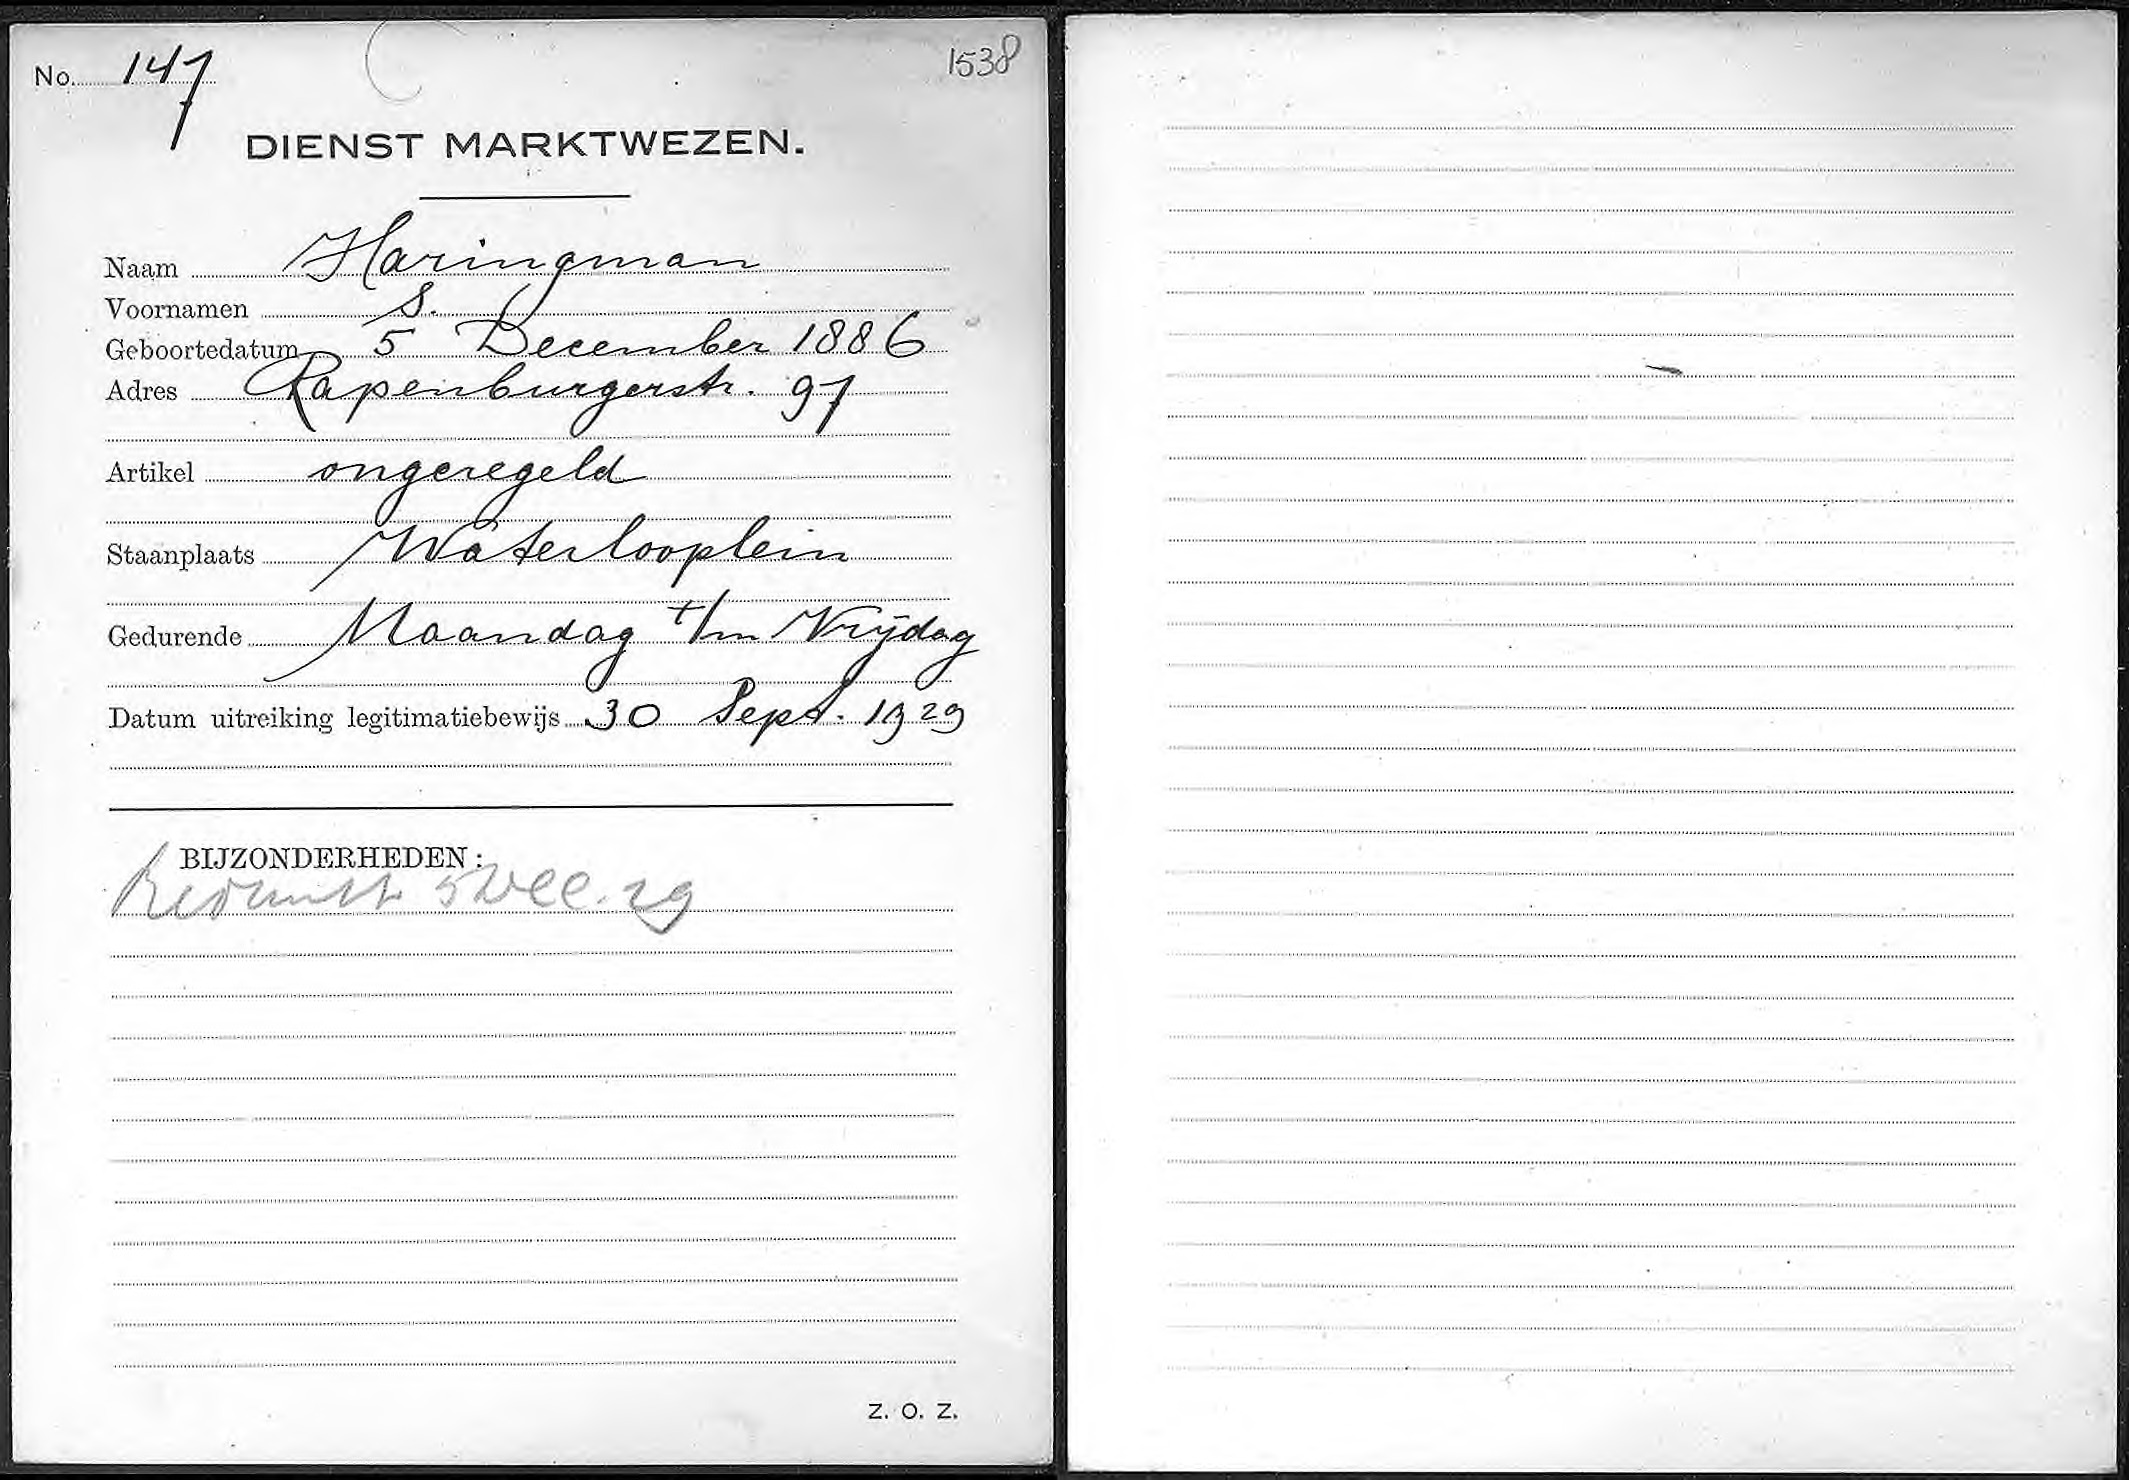 No. 147
1538
DIENST MARKTWEZEN.
Naam Haringman
Voornamen S.
Geboortedatum 5 December 1886
Adres Rapenburgerstr. 97
Artikel ongeregeld
Staanplaats Waterlooplein
Gedurende Maandag t/m Vrijdag
Datum uitreiking legitimatiebewijs 30 Sept. 1929
BIJZONDERHEDEN:
Bedankt 5 Dec. 29
Z. O. Z.